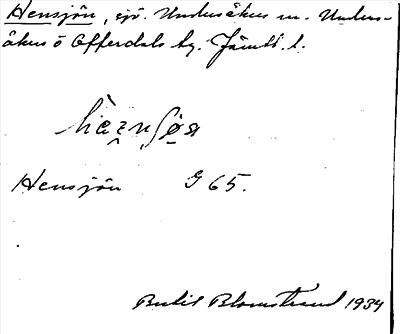 Hensjön, sjö. Undersåkers sn. Unders-
åkers o Offerdals tg. Jämtl. l.
Hensjön G 65.
Bertil Blomstrand 1934